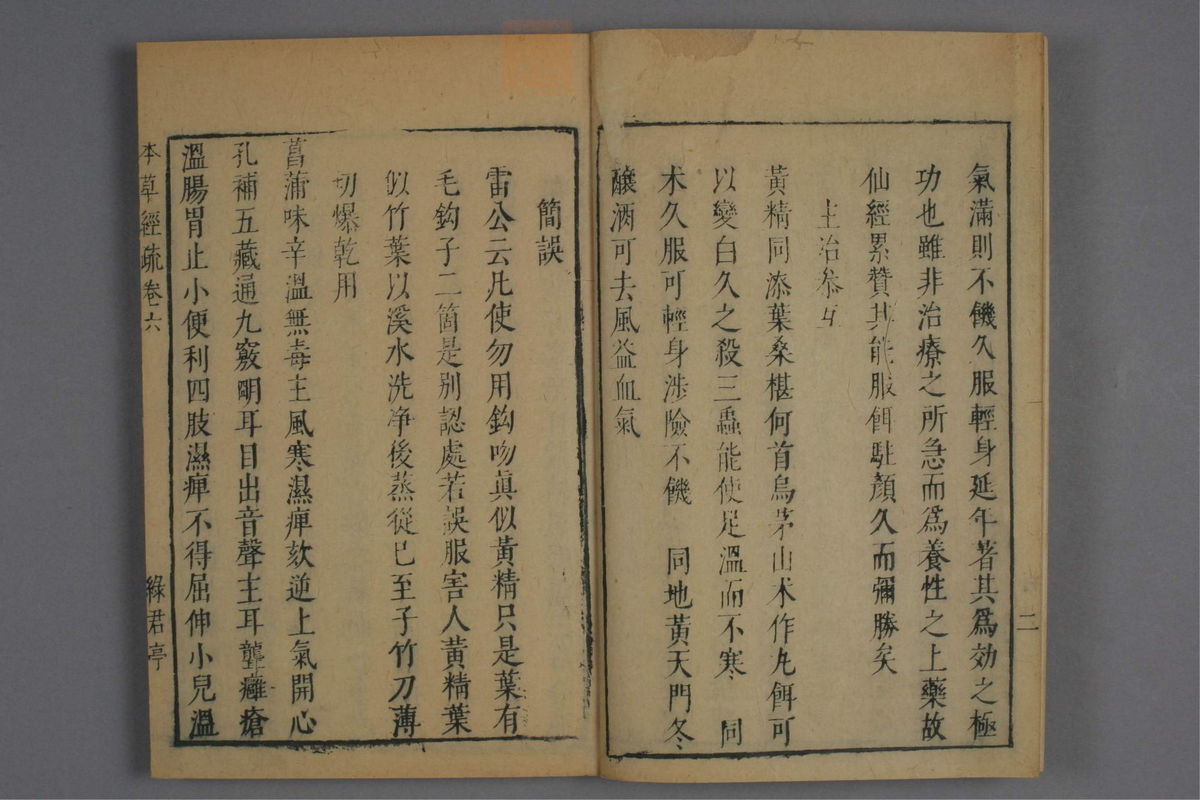 氣滿則不饑久服輕身延年著其爲効之極
功也雖非治療之所急而爲養性之上藥故
仙經累贊其能服餌駐顏久而彌勝矣
主治叅互
黃精同漆葉桑椹何首烏茅山朮作丸餌可
以變白久之殺三蟲能使足溫而不寒 同
朮久服可輕身涉險不饑 同地黃天門冬
釀酒可去風益血氣
二
簡誤
雷公云凡使勿用鈎吻眞似黃精只是葉有
毛鈎子二箇是別認處若誤服害人黃精葉
似竹葉以溪水洗净後蒸從巳至子竹刀薄
切爆乾用
菖蒲味辛溫無毒主風寒濕痺欬逆上氣開心
孔補五藏通九竅明耳目出音聲主耳聾癰瘡
溫腸胃止小便利四肢濕痺不得屈伸小兒溫
本草經疏卷六 綠君亭